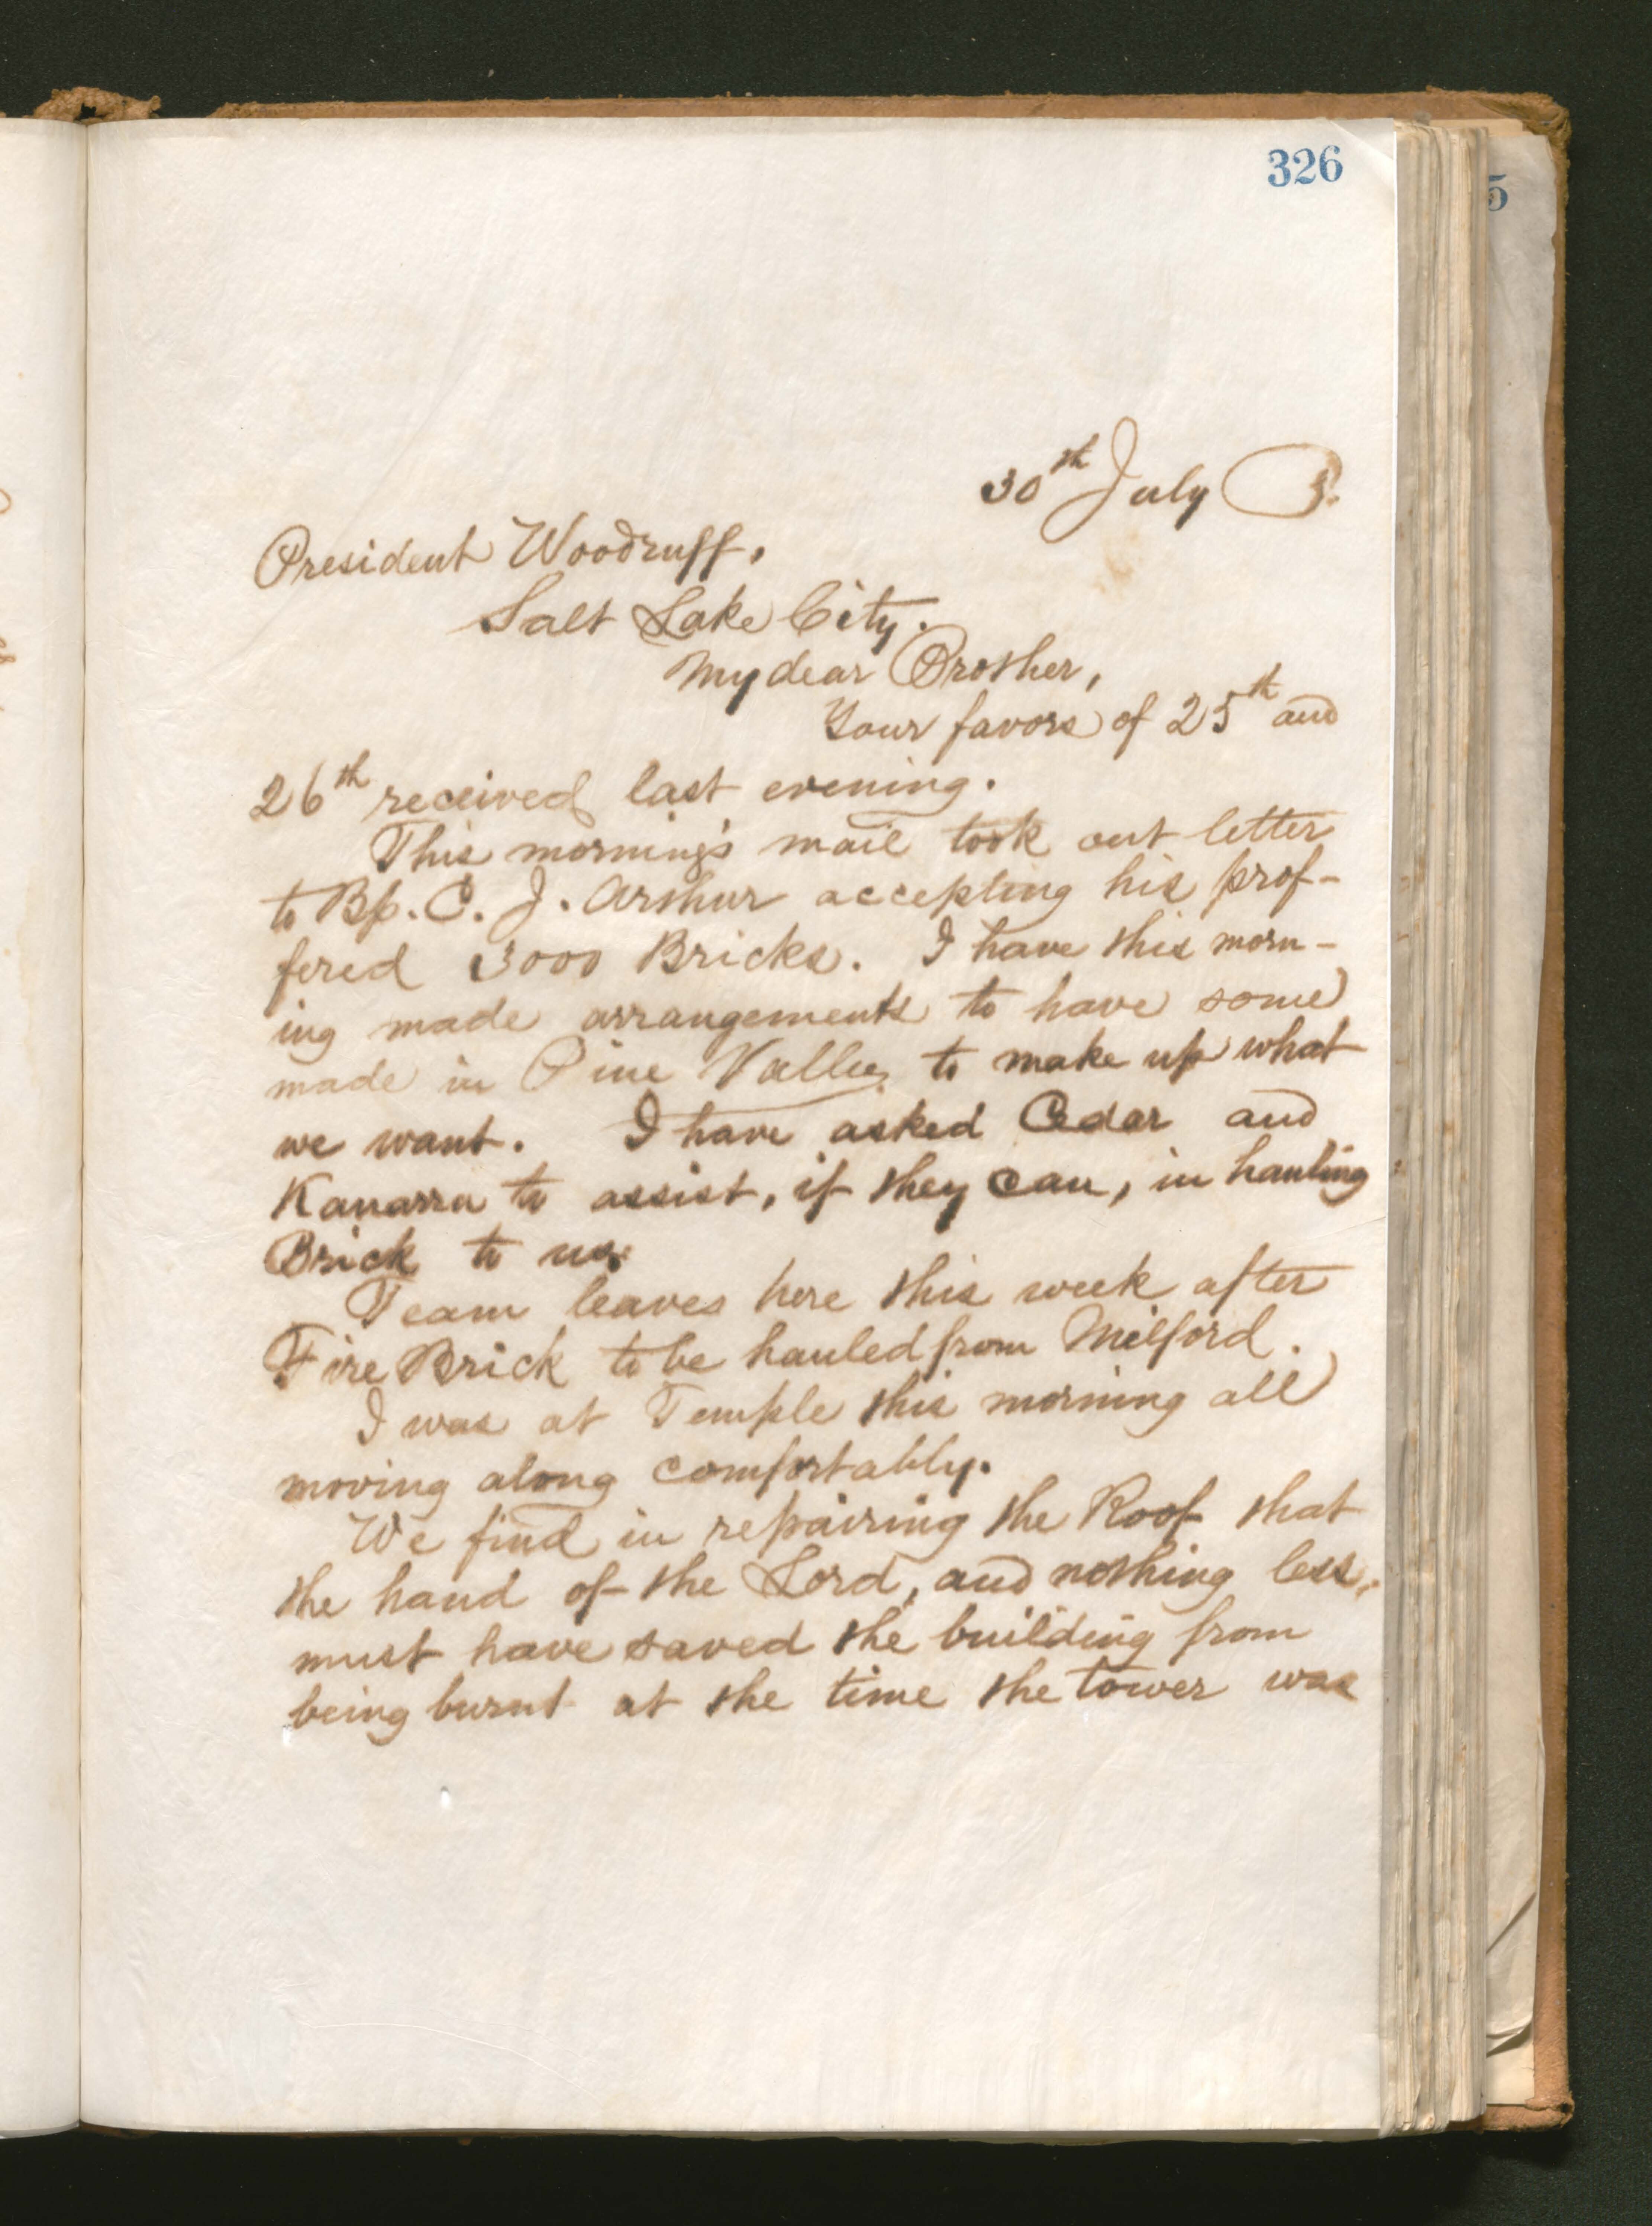 326
5
30th July 3.
President Woodruff,
Salt Lake City.
My dear Brother,
Your favors of 25th and
26th received last evening.
This morning's mail took out letter
to Bp. C. J. Arthur accepting his prof-
fered 3000 Bricks. I have this morn-
ing made arrangements to have some
made in Pine Valley to make up what
we want. I have asked Cedar and
Kanarra to assist, if they can, in hauling
Brick to us.
Team leaves here this week after
Fire Brick to be hauled from Milford.
I was at Temple this morning all
moving along comfortably.
We find in repairing the Roof that
the hand of the Lord, and nothing less,
must have saved the building from
being burnt at the time the tower was